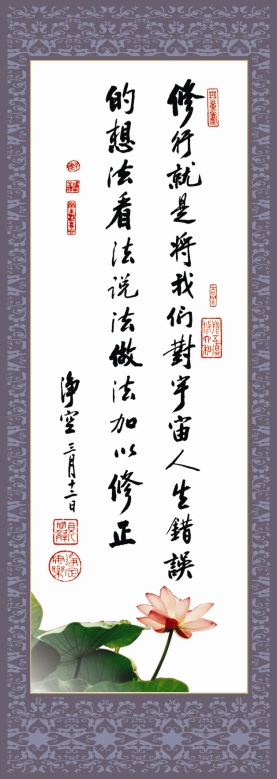 修行就是將我们對宇宙人生錯誤
的想法看法说法做法加以修正
淨空 三月十二日